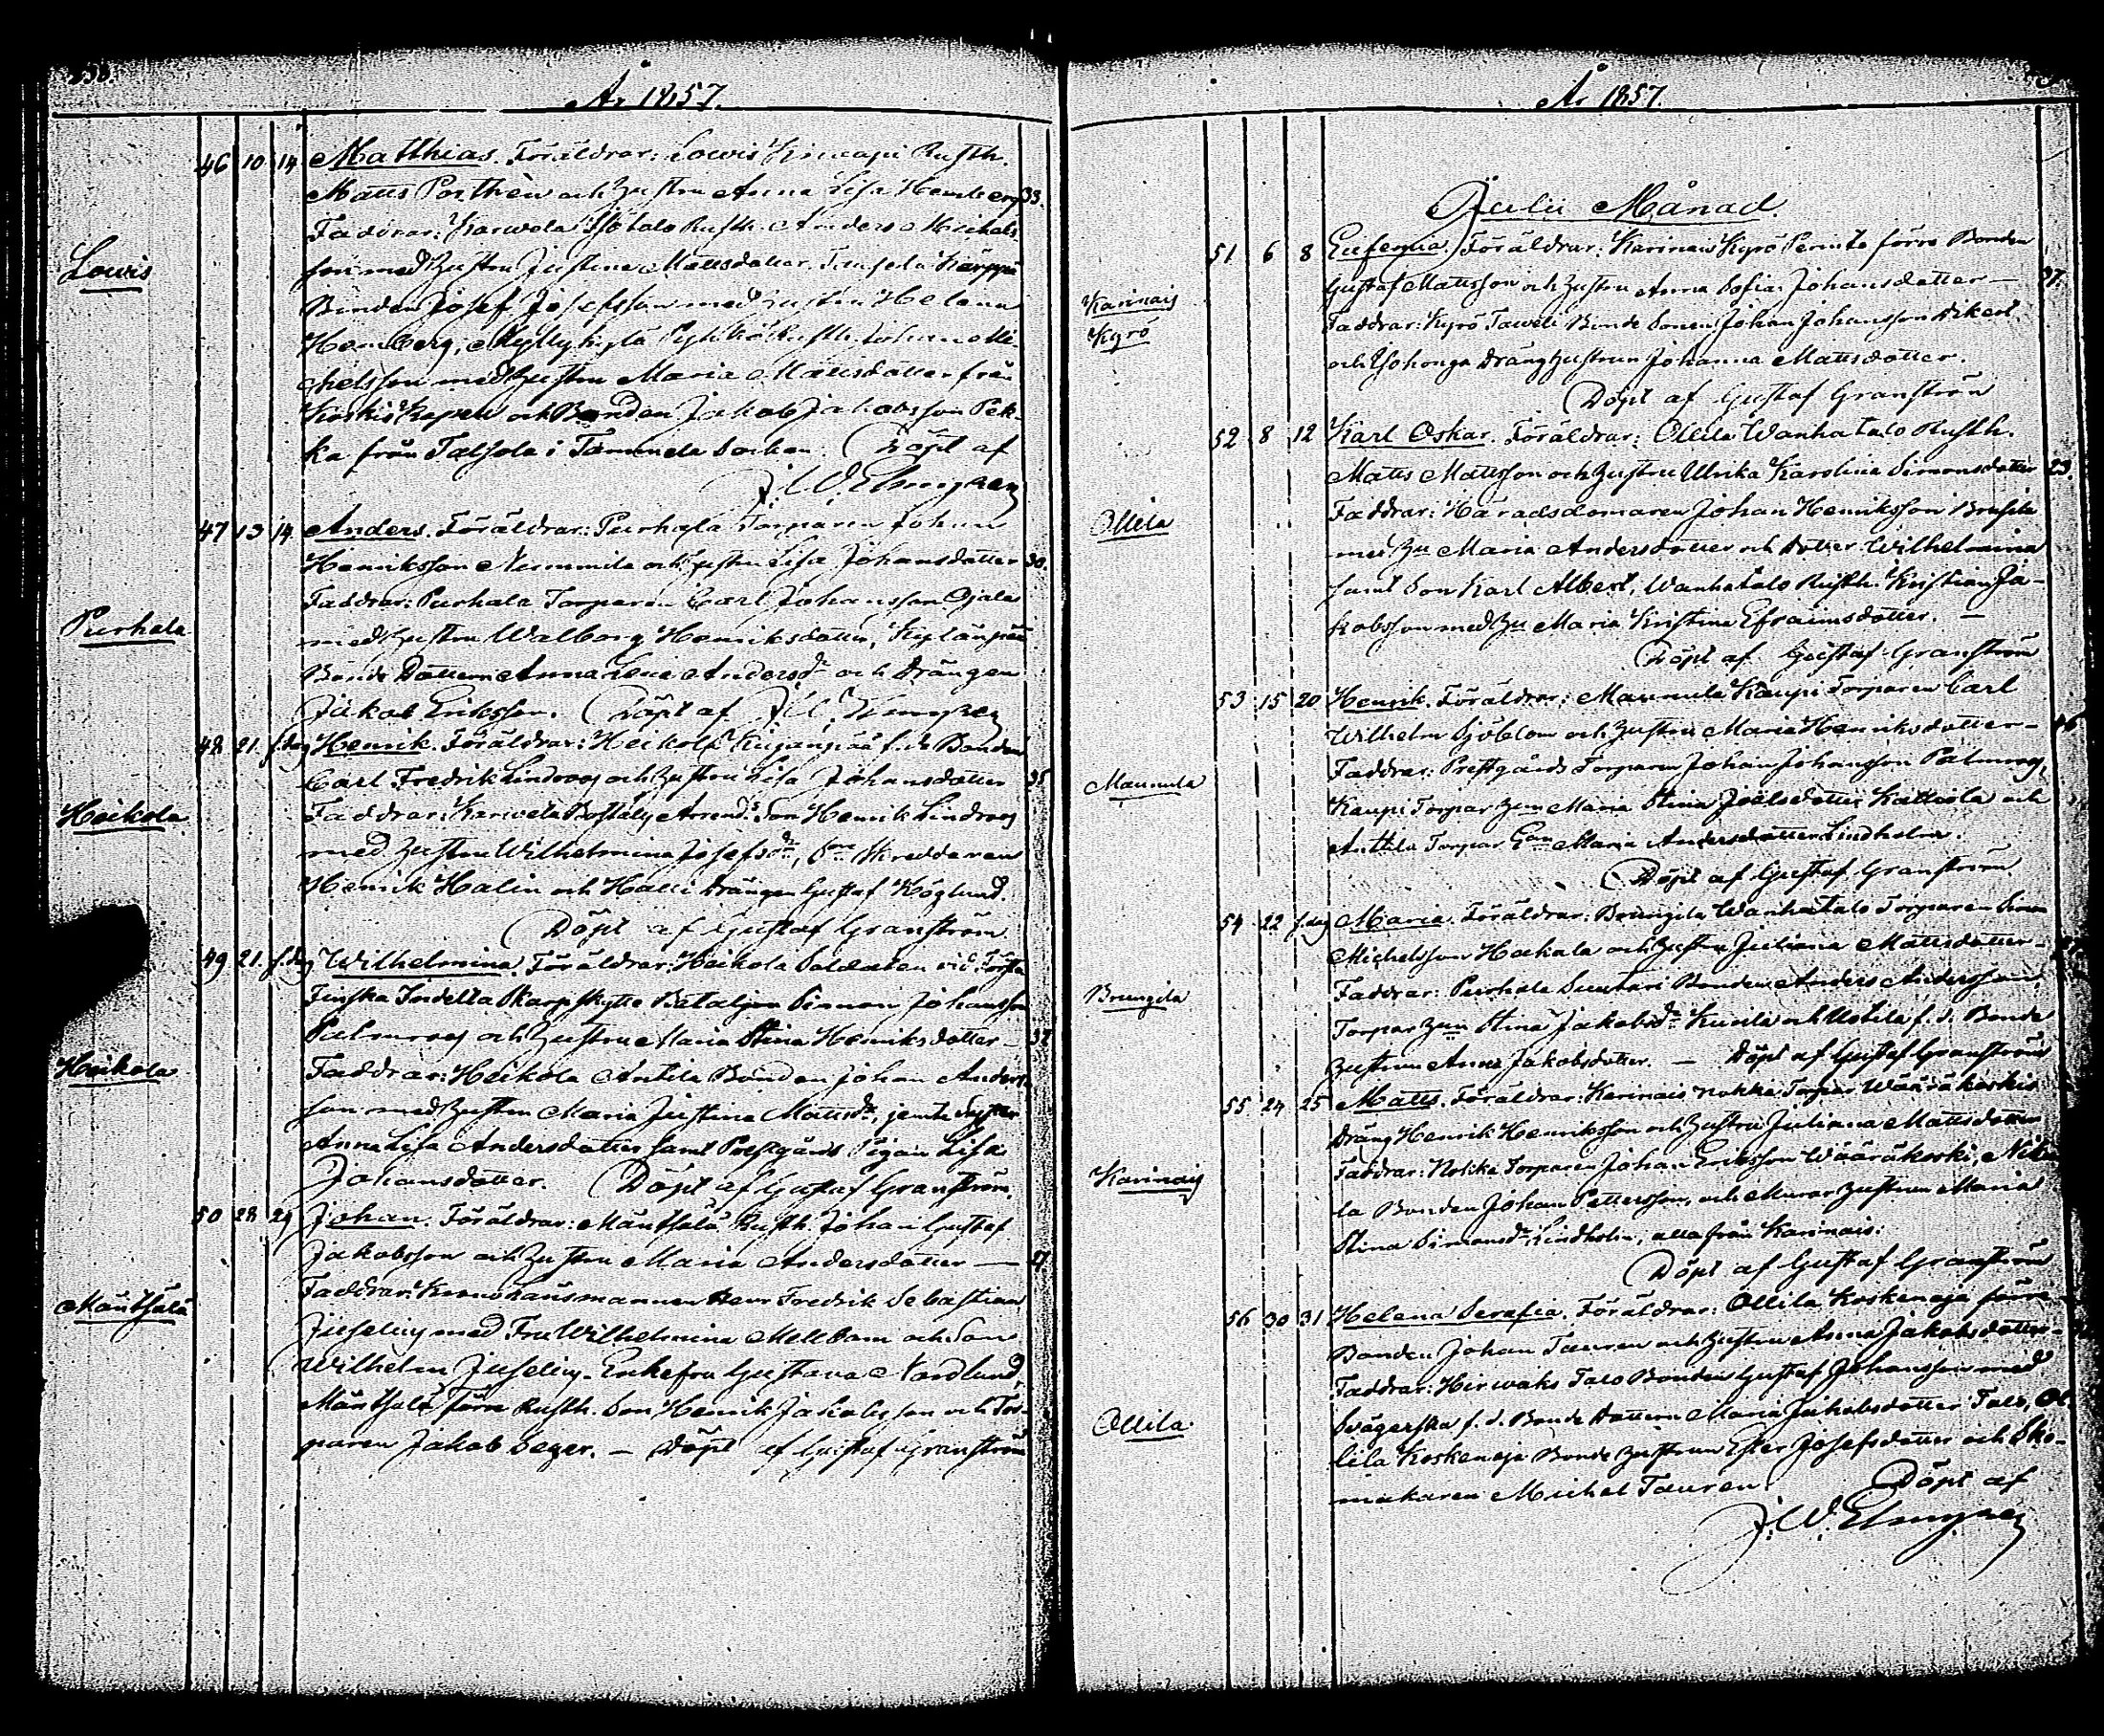 År 1857.
Lowis
46 10 14 Matthias. Föräldrar: Lowis Rusth.
Matts Porthèn och Hustru Anna Lisa Hemberg 33.
Faddrar: Karwela Isotalo Rusth. Anders Michels
son med Hustru Justina Mattsdotter. Karppi
Bonden Josef Josefsson med Hustru Helena
Hemberg, Myllykylä Rusth. Johan Mi
chelsson med Hustru Maria Mattsdotter från
Koskis och Bonden Jakob Jakobsson Pek-
ka från Talsola i Tammela Socken. Döpt af
J. W. Elmgren
Purhala
47 13 14 Anders. Föräldrar: Purhala Torparen Johan
Henriksson Niemmila och Hustru Lisa Johansdotter 30.
Faddrar: Purhala Torparen Carl Johansson Ojala
med Hustru Walborg Henriksdotter, Kylänpää
Bonde Dottern Anna Lena Andersdr och Drängen
Jakob Eriksson. Döpt af J. W. Elmgren
Heikola
48 21. s.dag Henrik. Föräldrar: Heikola f.d. Bonden
Carl Fredrik Lindroos och Hustru Lisa Johansdotter 35
Faddrar: Karwela Boställs Arrend. Son Henrik Lindroos
med Hustru Wilhelmina Josefsdr, Skreddaren
Henrik Halin och Halli Drängen Gustaf Höglund.
Döpt af Gustaf Granström
Heikola
49 21. s.dag Wilhelmina. Föräldrar: Heikola Soldaten vid Första
Finska Indelta Skarpskytte Bataljon Simon Johansson
Palmroos och Hustru Maria Stina Henriksdotter – 37
Faddrar: Heikola Antila Bonden Johan Anders-
son med Hustru Maria Justina Mattsdr, jemte Syster
Anna Lisa Andersdotter samt Prestgårds Pigan Lisa
Johansdotter. Döpt af Gustaf Granström.
Mäntsälä
50 28 29 Johan. Föräldrar: Mäntsälä Rusth. Johan Gustaf
Jakobsson och Hustru Maria Andersdotter —
Faddrar: Kronolänsmannen Herr Fredrik Sebastian
Juselius med Fru Wilhelmina Mellbom och Son
Wilhelm Juselius. Enkefru Gustava Nordlund,
Mäntsälä förre Rusth. Son Henrik Jakobsson och Tor-
paren Jakob Seger. — Döpt af Gustaf Granström
År 1857.
Julii Månad.
Karinais
Kyrö
51 6 8 Eufemia. Föräldrar: Karinais Kyrö förre Bonden
Gustaf Mattsson och Hustru Anna Sofia Johansdotter — 37.
Faddrar: Kyrö Taweli Bonde Sonen Johan Johansson
och Isohonga Dränghustrun Johanna Mattsdotter.
Döpt af Gustaf Granström
Ollila
52 8 12 Karl Oskar. Föräldrar: Ollila Wanhatalo Rusth.
Matts Mattsson och Hustru Ulrika Karolina Simonsdotter 23.
Faddrar: Häradsdomaren Johan Henriksson
med Hu Maria Andersdotter och Dotter Wilhelmina
samt Son Karl Albert, Wanhatalo Rusth. Kristian Ja-
kobsson med Hu Maria Kristina Efraimsdotter. —
Döpt af Gustaf Granström
Maunula
53 15 20 Henrik. Föräldrar: Maunula Kaupi Torparen Carl
Wilhelm Sjöblom och Hustru Maria Henriksdotter — 46
Faddrar: Prestgårds Torparen Johan Johansson Palmroos,
Kaupi Torpar Hun Maria Stina Joelsdotter Kattola och
Anttila Torpar Maria Andersdotter Lindholm.
Döpt af Gustaf Granström
Brungila
54 22 s.dag Maria. Föräldrar: Brungila Wanhatalo Torparen Simon
Michelsson Hakala och Hustru Juliana Mattsdotter –
Faddrar: Purhala Suutari Bonden Anders Andersson,
Torpar Hun Stina Jakobsdr och Uotila f. d. Bonde
Hustrun Anna Jakobsdotter. — Döpt af Gustaf Granström
Karinais
55 24 25 Matts. Föräldrar: Karinais Torpar Wääräkoskis
Dräng Henrik Henriksson och Hustru Juliana Mattsdotter
Faddrar: Torparen Johan Eriksson Wääräkoski,
la Bonden Johan Pettersson, och Murar Hustrun Maria
Stina Simonsdr Lindholm, alla från Karinais.
Döpt af Gustaf Granström
Ollila
56 30 31 Helena Serafia. Föräldrar: Ollila Koskenoja förre
Bonden Johan Tauren och Hustru Anna Jakobsdotter –
Faddrar: Hirwaks Talo Bonden Gustaf Johansson med
Svägerska f. d. Bonde Dottern Maria Jakobsdotter Talo, Ol
lila Koskenoja Bonde Hustrun Ester Josefsdotter och Sko-
makaren Michel Tauren. Döpt af
J. W. Elmgren